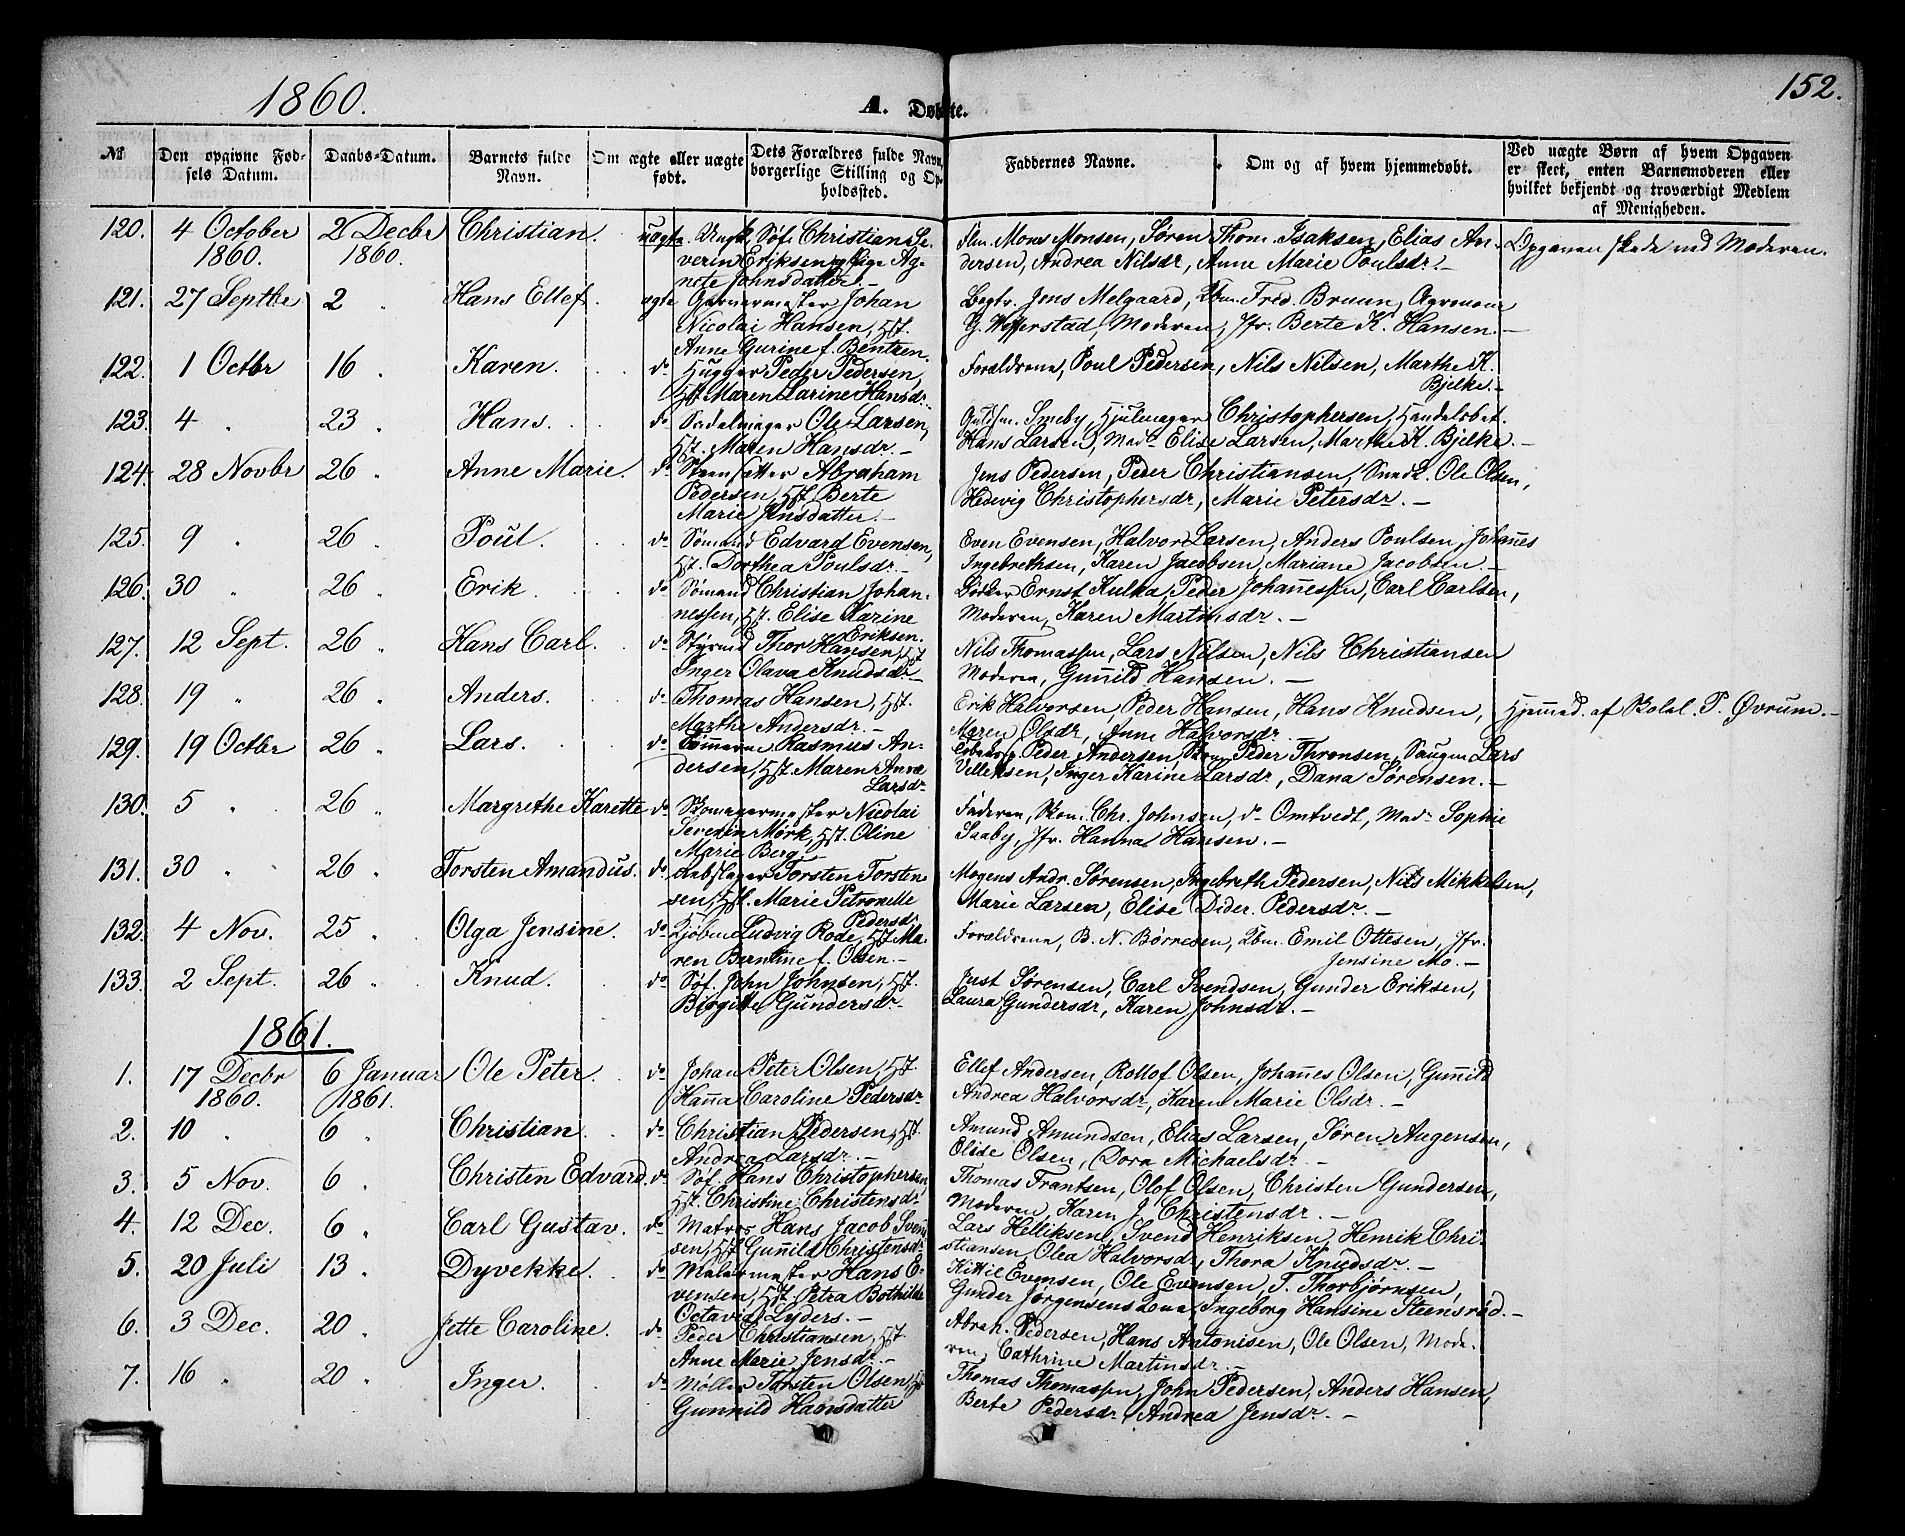 1860.
A. Døbte.
152.
№
Den opgivne Fødsels Datum.
Daabs-Datum.
Barnets fulde Navn.
Om ægte eller uægte født.
Dets Forældres fulde Navn, borgerlige Stilling og Opholdssted.
Faddernes Navne.
Om og af hvem hjemmedøbt.
Ved uægte Børn af hvem Opgaven er skeet, enten Barnemoderen eller hvilket bekjendt og troværdigt Medlem af Menigheden.
120. 4 October 2 Decbr Christian. uægte Ungk. Søf. Christian Se- Mons Monsen, Søren Thom. Isaksen, Elias An- Opgaven skede ved Moderen.
1860. 1860. verin Eriksen, og Pige Ag- dersen, Andrea Nilsdr, Anne Marie Poulsdr. –
nete Johnsdatter. –
121. 27 Septbr 2 " Hans Ellef. ægte Garvermester Johan Jens Melgaard, Fred. Bruun,
Nicolai Hansen, Hst. Moderen, Jfr. Berte K. Hansen. –
Anne Gurine f. Bentzen.
122. 1 Octbr 16 " Karen. do Hugger Peder Pedersen, Forældrene, Poul Pedersen, Nils Nilsen, Marthe K.
Hst. Maren Larine Hansdr. – Bjelke. –
123. 4 " 23 " Hans. do Sadelmager Ole Larsen, Guldsm. Smeby, Hjulmager Christophersen, Handelsbet.
Hst. Maren Hansdr. – Hans Larsen, Mad. Elise Larsen, Marthe K. Bjelke. –
124. 28 Novbr 26 " Anne Marie. do Steensætter Abraham Jens Pedersen, Peder Christiansen, Ole Olsen,
Pedersen, Hst. Berte Hedevig Christophersdr, Marie Petersdr. –
Marie Jensdatter. –
125. 9 " 26 " Poul. do Sømand Edvard Evensen, Even Evensen, Halvor Larsen, Anders Poulsen, Johannes
Hst. Dorthea Poulsdr. – Ingebrethsen, Karen Jacobsen, Mariane Jacobsen. –
126. 30 " 26 " Erik. do Sømand Christian Johan- Bødker Ernst Kulka, Peder Johannessen, Carl Carlsen,
nessen, Hst. Elise Karine Moderen, Karen Martinsdr. –
Eriksen.
127. 12 Sept. 26 " Hans Carl. do Styrmd Thor Hansen, Hst. Nils Thomassen, Lars Nilsen, Nils Christiansen
Inger Olava Knudsdr – Moderen, Gunild Hansen. –
128. 19 " 26 " Anders. do Thomas Hansen, Hst. Erik Halvorsen, Peder Hansen, Hans Knudsen, Hjemmed. af P. Øvrum. –
Marthe Andersdr. – Maren Olsdr, Anne Halvorsdr.
129. 19 Octbr 26 " Lars. do Tømmerm. Rasmus An- Peder Andersen, Peder Thronsen, Lars
dersen, Hst. Maren Anne Villeksen, Inger Karine Larsdr, Dana Sørensen. –
Larsdr
130. 5 " 26 " Margrethe Karette do Skomagermester Nicolai Faderen, Skom. Chr. Johnsen, do Omtvedt, Mad. Sophie
Severin Mørk, Hst. Oline Saaby, Jfr. Hanna Hansen. –
Marie Berg. –
131. 30 " 26 " Torsten Amandus. do Rebslager Torsten Torsten- Mogens Andr. Sørensen, Ingebreth Pedersen, Nils Mikkelsen,
sen, Hst. Marie Petronelle Marie Larsen, Elise Dider. Pedersdr. –
Pedersdr
132. 4 Nov. 25 " Olga Jensine. do Kjøbm. Ludvig Rode, Hst. Ma- Forældrene, B. N. Børresen, Emil Ottesen, Jfr.
ren Berntine f. Olsen. – Jensine Mo. –
133. 2 Sept. 26 " Knud. do Søf. John Johnsen, Hst. Just Sørensen, Carl Svendsen, Gunder Eriksen,
Birgitte Gundersdr. – Laura Gundersdr, Karen Johnsdr. –
1861.
1. 17 Decbr 6 Januar Ole Peter. do Johan Peter Olsen, Hst. Ellef Andersen, Rollof Olsen, Johannes Olsen, Gunild
1860. 1861. Hanna Caroline Pedersdr Andrea Halvorsdr, Karen Marie Olsdr. –
2. 10 " 6 " Christian. do Christian Pedersen, Hst. Amund Amundsen, Elias Larsen, Søren Augensen,
Andrea Larsdr. – Elise Olsen, Dora Michaelsdr. –
3. 5 Nov. 6 " Christen Edvard. do Søf. Hans Christophersen Thomas Frantsen, Olof Olsen, Christen Gundersen,
Hst. Christine Christensdr Moderen, Karen J. Christensdr. –
4. 12 Dec. 6 " Carl Gustav. do Matros Hans Jacob Svend- Lars Helliksen, Svend Henriksen, Henrik Chri-
sen, Hst. Gunild Christensdr stiansen, Olea Halvorsdr, Thora Knudsdr. –
5. 20 Juli 13 " Dyvekke. do Malermester Hans E- Kittil Evensen, Ole Evensen, T. Thorbjørnsen,
vensen, Hst. Petra Bothilde Gunder Jørgensens Kone, Ingeborg Hansine Steensrød. –
Octavia Lyders. –
6. 3 Dec. 20 " Jette Caroline. do Peder Christiansen, Hst. Abrah. Pedersen, Hans Antonisen, Ole Olsen, Mode-
Anne Marie Jensdr. – ren, Cathrine Martinsdr. –
7. 16 " 20 " Inger. do Møller Torsten Olsen, Hst. Thomas Thomassen, John Pedersen, Anders Hansen,
Gunnild Hansdatter Berte Pedersdr, Andrea Jensdr. –